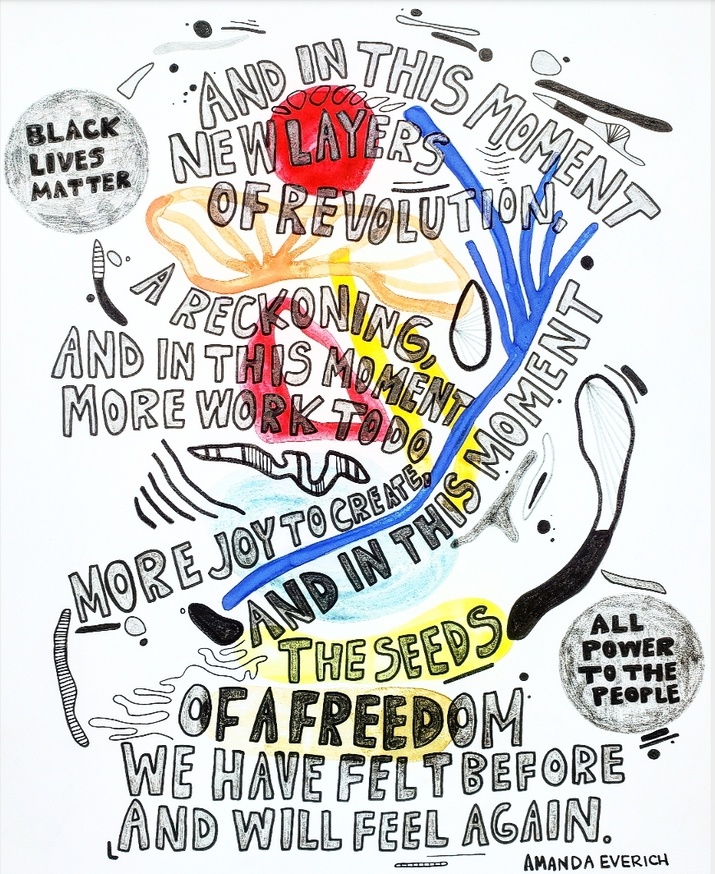 AND IN THIS MOMENT
NEW LAYERS
OF REVOLUTION,
BLACK
LIVES
MATTER
A RECKONING,
AND IN THIS MOMENT
MORE WORK TO DO,
MORE JOY TO CREATE,
AND IN THIS MOMENT
THE SEEDS
OF A FREEDOM
WE HAVE FELT BEFORE
AND WILL FEEL AGAIN.
ALL
POWER
TO THE
PEOPLE
AMANDA EVERICH